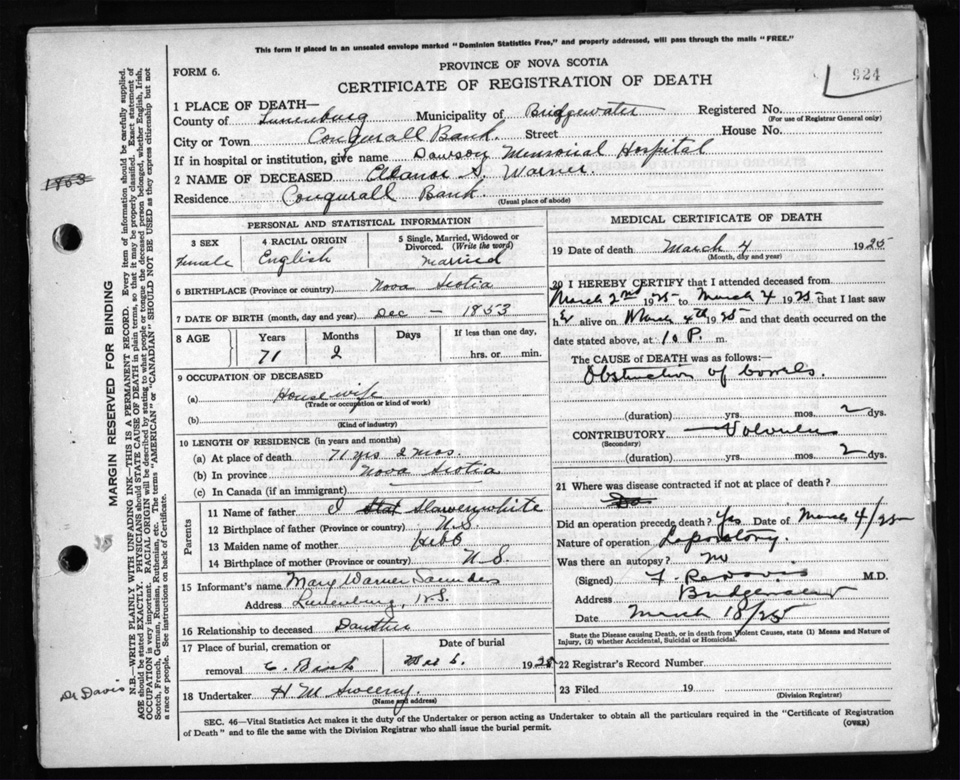 This form if placed in an unsealed envelope marked "Dominion Statistics Free," and properly addressed, will pass through the mails "FREE."
PROVINCE OF NOVA SCOTIA
FORM 6.
CERTIFICATE OF REGISTRATION OF DEATH
924
1 PLACE OF DEATH—
County of Lunenburg Municipality of Bridgewater Registered No.
(For use of Registrar General only)
City or Town Conqurall Bank. Street House No.
If in hospital or institution, give name Dawson Memorial Hospital
2 NAME OF DECEASED Eleanor S. Warner.
Residence Conqurall Bank.
(Usual place of abode)
1853
PERSONAL AND STATISTICAL INFORMATION
3 SEX
Female
4 RACIAL ORIGIN
English
5 Single, Married, Widowed or Divorced. (Write the word)
Married
6 BIRTHPLACE (Province or country) Nova Scotia
7 DATE OF BIRTH (month, day and year) Dec — 1853
8 AGE Years Months Days If less than one day,
71 2 hrs. or min.
9 OCCUPATION OF DECEASED
(a) House wife
(Trade or occupation or kind of work)
(b)
(Kind of industry)
10 LENGTH OF RESIDENCE (in years and months)
(a) At place of death 71 yrs 2 mos.
(b) In province Nova Scotia
(c) In Canada (if an immigrant)
Parents
11 Name of father
12 Birthplace of father (Province or country) N.S.
13 Maiden name of mother Hebb
14 Birthplace of mother (Province or country) N.S.
15 Informant's name Mary Warner Saunders
Address Lunenburg, N.S.
16 Relationship to deceased
17 Place of burial, cremation or removal
Date of burial
1925
18 Undertaker H M Sweeny.
(Name and address)
MEDICAL CERTIFICATE OF DEATH
19 Date of death March 4 1925
(Month, day and year)
20 I HEREBY CERTIFY that I attended deceased from
March 2nd 1925 to March 4 1925, that I last saw
her alive on March 4th 1925 and that death occurred on the
date stated above, at 10 P. m.
The CAUSE of DEATH was as follows:—
Obstruction of bowels.
(duration) yrs. mos. 2 dys.
CONTRIBUTORY Volvulus
(Secondary)
(duration) yrs. mos. 2 dys.
21 Where was disease contracted if not at place of death?
Do
Did an operation precede death? Yes Date of March 4/25
Nature of operation
Was there an autopsy? no
(Signed) M.D.
Address Bridgewater
Date March 18/25
State the Disease causing Death, or in death from Violent Causes, state (1) Means and Nature of Injury, (2) whether Accidental, Suicidal or Homicidal.
22 Registrar's Record Number
23 Filed 19
(Division Registrar)
SEC. 46—Vital Statistics Act makes it the duty of the Undertaker or person acting as Undertaker to obtain all the particulars required in the "Certificate of Registration
of Death" and to file the same with the Division Registrar who shall issue the burial permit.
(OVER)
MARGIN RESERVED FOR BINDING
N.B.—WRITE PLAINLY WITH UNFADING INK—THIS IS A PERMANENT RECORD. Every item of information should be carefully supplied.
AGE should be stated EXACTLY. PHYSICIANS should STATE CAUSE OF DEATH in plain terms, so that it may be properly classified. Exact statement of
OCCUPATION is very important. RACIAL ORIGIN will be described by stating to what people or tongue the deceased person belonged, whether English, Irish,
Scotch, French, German, Russian, Ruthenian, etc. The terms "AMERICAN" or "CANADIAN" SHOULD NOT BE USED as they express citizenship but not
a race or people. See instructions on back of Certificate.
Dr Davis